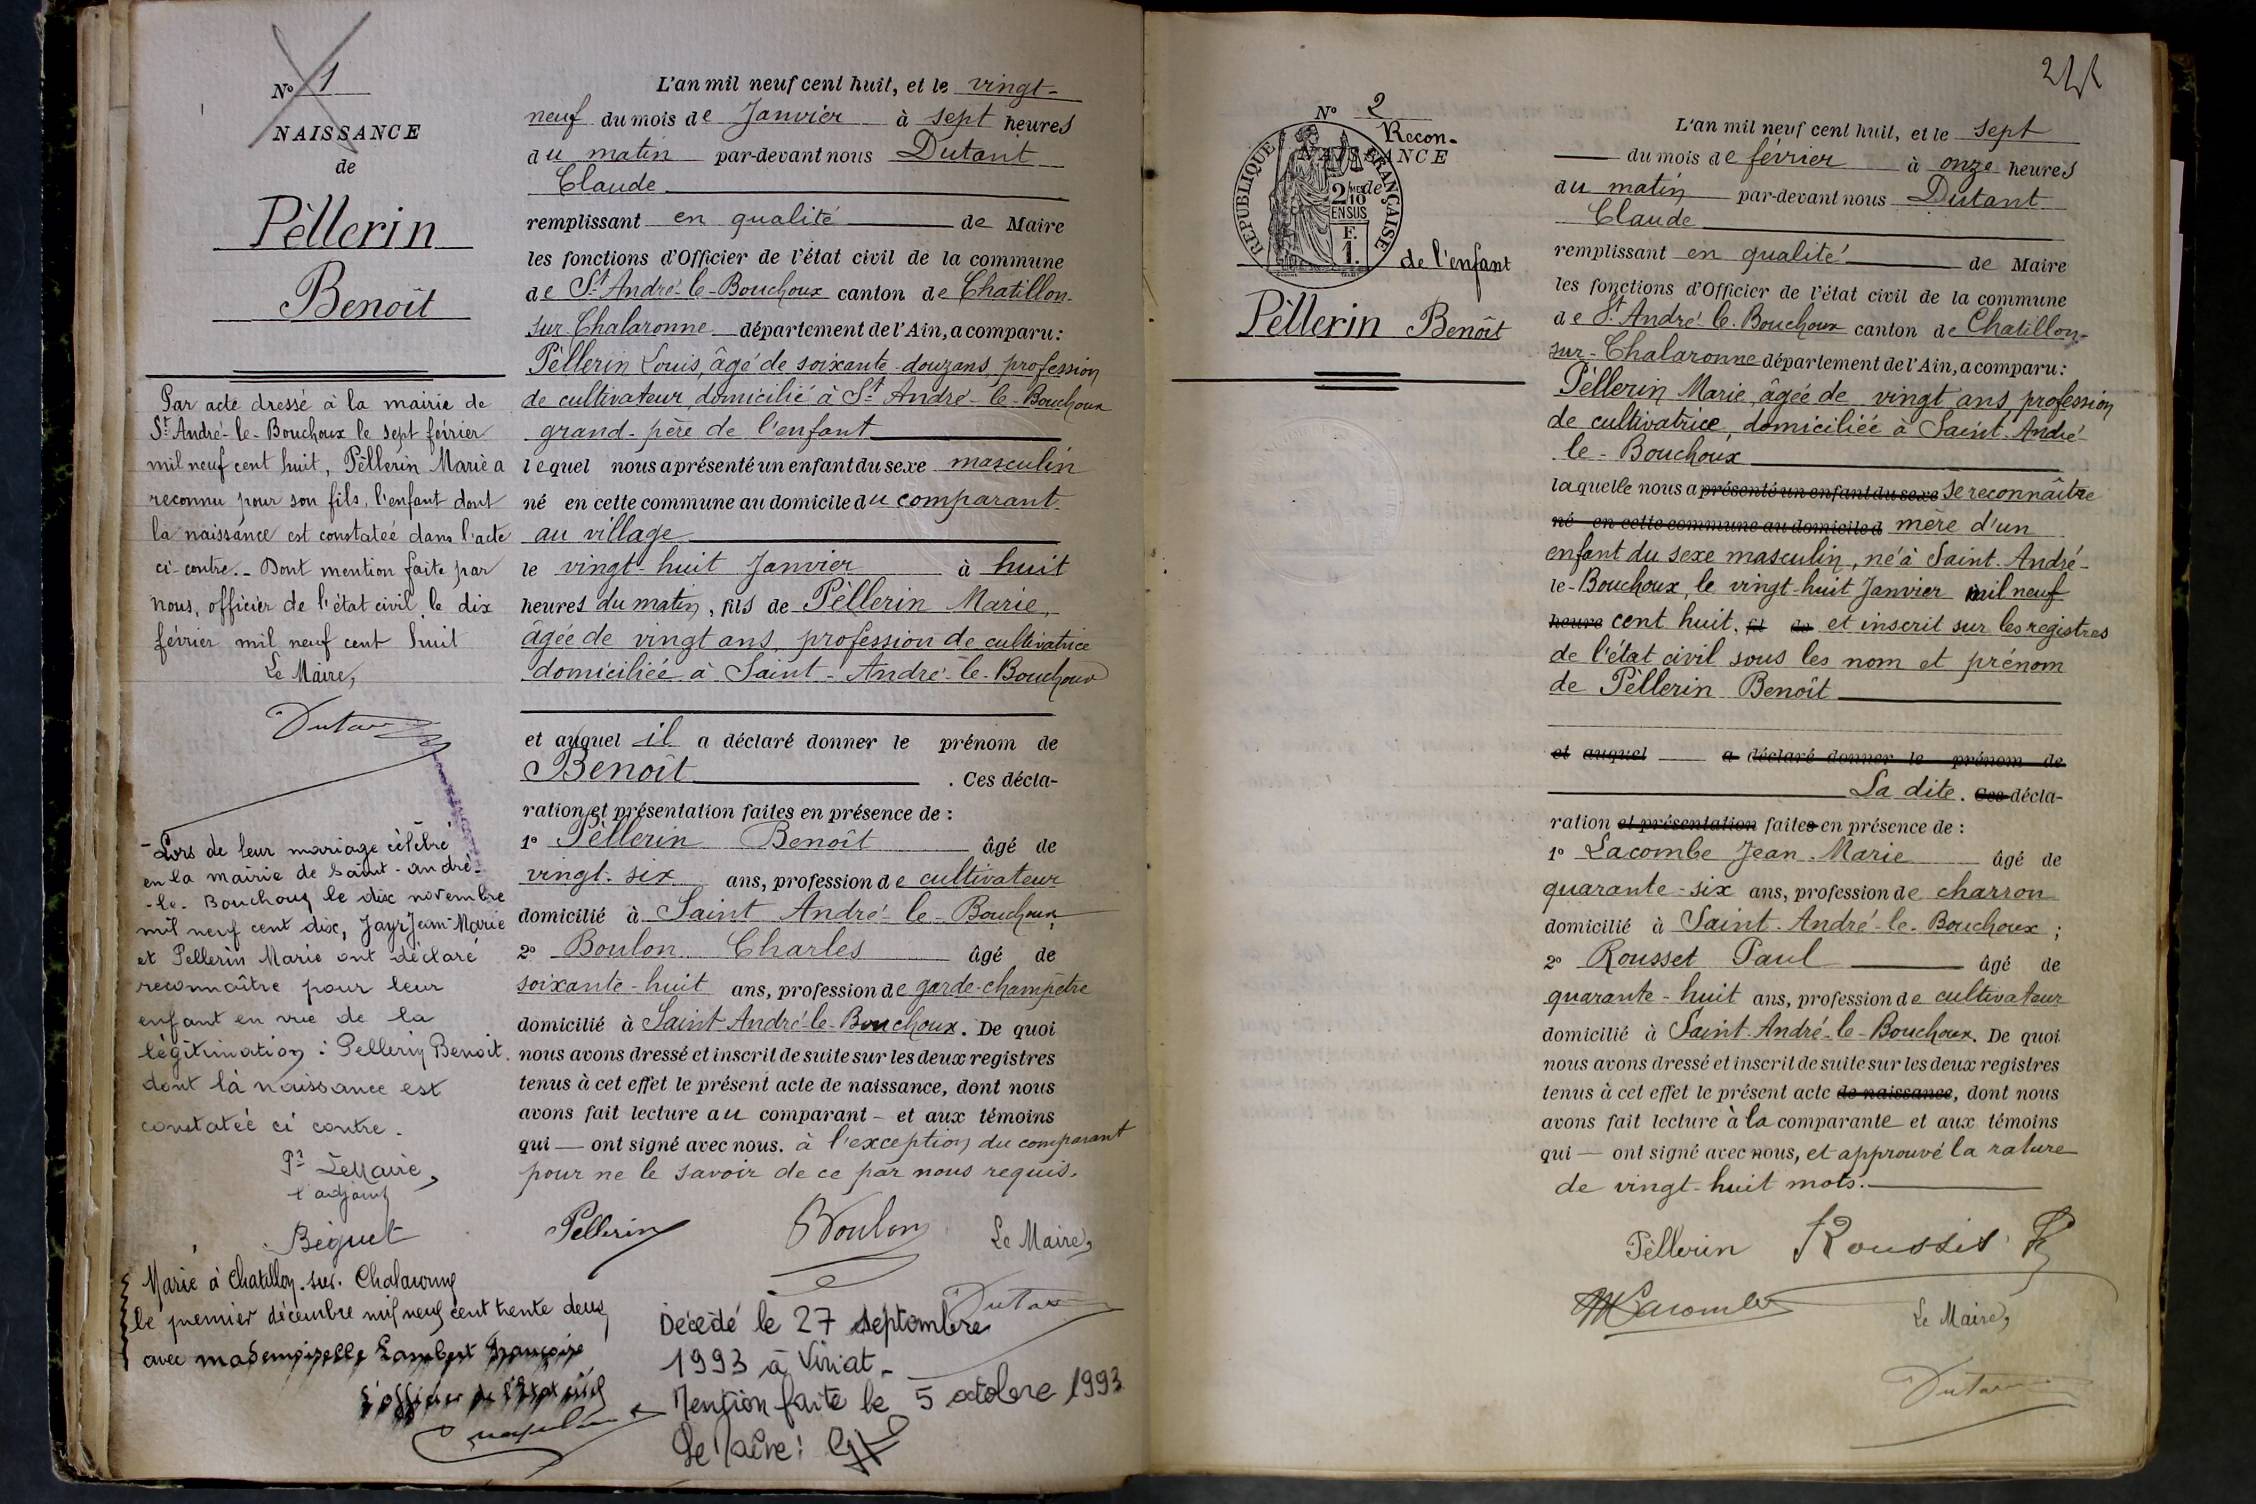 N° 1
NAISSANCE
de
Pèllerin
Benoît
Par acte dressé à la mairie de
St André-le-Bouchoux le sept février
mil neuf cent huit, Pèllerin Marie a
reconnu pour son fils, l'enfant dont
la naissance est constatée dans l'acte
ci-contre. - Dont mention faite par
nous, officier de l'état civil le dix
février mil neuf cent huit
Le Maire,
Dutant
- Lors de leur mariage célébré
en la mairie de Saint-andré-
-le-Bouchoux le dix novembre
mil neuf cent dix, Jayr Jean-Marie
et Pellerin Marie ont déclaré
reconnaître pour leur
enfant en vue de la
légitimation : Pellerin Benoit
dont la naissance est
constatée ci contre.
Pr Le Maire,
l'adjoint
Béguet
Marié à Chatillon-sur-Chalaronne
le premier décembre mil neuf cent trente deux
avec mademoiselle Lambert Françoise
L'officier de l'Etat civil
L'an mil neuf cent huit, et le vingt-
neuf du mois de Janvier à sept heures
du matin par-devant nous Dutant
Claude
remplissant en qualité de Maire
les fonctions d'Officier de l'état civil de la commune
de St André-le-Bouchoux canton de Chatillon-
sur-Chalaronne département de l'Ain, a comparu :
Pèllerin Louis, âgé de soixante-douze ans, profession
de cultivateur, domicilié à St André-le-Bouchoux
grand-père de l'enfant
lequel nous a présenté un enfant du sexe masculin
né en cette commune au domicile du comparant
au village
le vingt-huit Janvier à huit
heures du matin, fils de Pèllerin Marie,
âgée de vingt ans, profession de cultivatrice
domiciliée à Saint-André-le-Bouchoux
et auquel il a déclaré donner le prénom de
Benoît . Ces décla-
ration et présentation faites en présence de :
1° Pèllerin Benoît âgé de
vingt-six ans, profession de cultivateur
domicilié à Saint André-le-Bouchoux,
2° Boulon Charles âgé de
soixante-huit ans, profession de garde-champêtre
domicilié à Saint André-le-Bouchoux. De quoi
nous avons dressé et inscrit de suite sur les deux registres
tenus à cet effet le présent acte de naissance, dont nous
avons fait lecture au comparant - et aux témoins
qui — ont signé avec nous. à l'exception du comparant
pour ne le savoir de ce par nous requis.
Pellerin Boulon Le Maire,
Dutant
Décédé le 27 septembre
1993 à Viriat -
Mention faite le 5 octobre 1993
Le Maire :
N° 2
Recon-
NAISSANCE
de
RÉPUBLIQUE FRANÇAISE
2 MES
10
EN SUS
F.
1.
de l'enfant
Pèllerin Benoît
L'an mil neuf cent huit, et le sept
— du mois de février à onze heures
du matin par-devant nous Dutant
Claude
remplissant en qualité de Maire
les fonctions d'Officier de l'état civil de la commune
de St André-le-Bouchoux canton de Chatillon-
sur-Chalaronne département de l'Ain, a comparu :
Pèllerin Marie, âgée de vingt ans, profession
de cultivatrice, domiciliée à Saint-André-
le-Bouchoux
laquelle nous a présenté un enfant du sexe se reconnaître
né en cette commune au domicile d mère d'un
enfant du sexe masculin, né à Saint-André-
le-Bouchoux, le vingt-huit Janvier mil neuf
heure cent huit, fil de et inscrit sur les registres
de l'état civil sous les nom et prénom
de Pèllerin Benoît
et auquel — a déclaré donner le prénom de
La dite. Ces décla-
ration et présentation faites en présence de :
1° Lacombe Jean-Marie âgé de
quarante-six ans, profession de charron
domicilié à Saint-André-le-Bouchoux ;
2° Rousset Paul âgé de
quarante-huit ans, profession de cultivateur
domicilié à Saint-André-le-Bouchoux. De quoi
nous avons dressé et inscrit de suite sur les deux registres
tenus à cet effet le présent acte de naissance, dont nous
avons fait lecture à la comparante et aux témoins
qui — ont signé avec nous, et approuvé la rature
de vingt-huit mots.
Pèllerin Rousset P
Lacombe
Le Maire,
Dutant